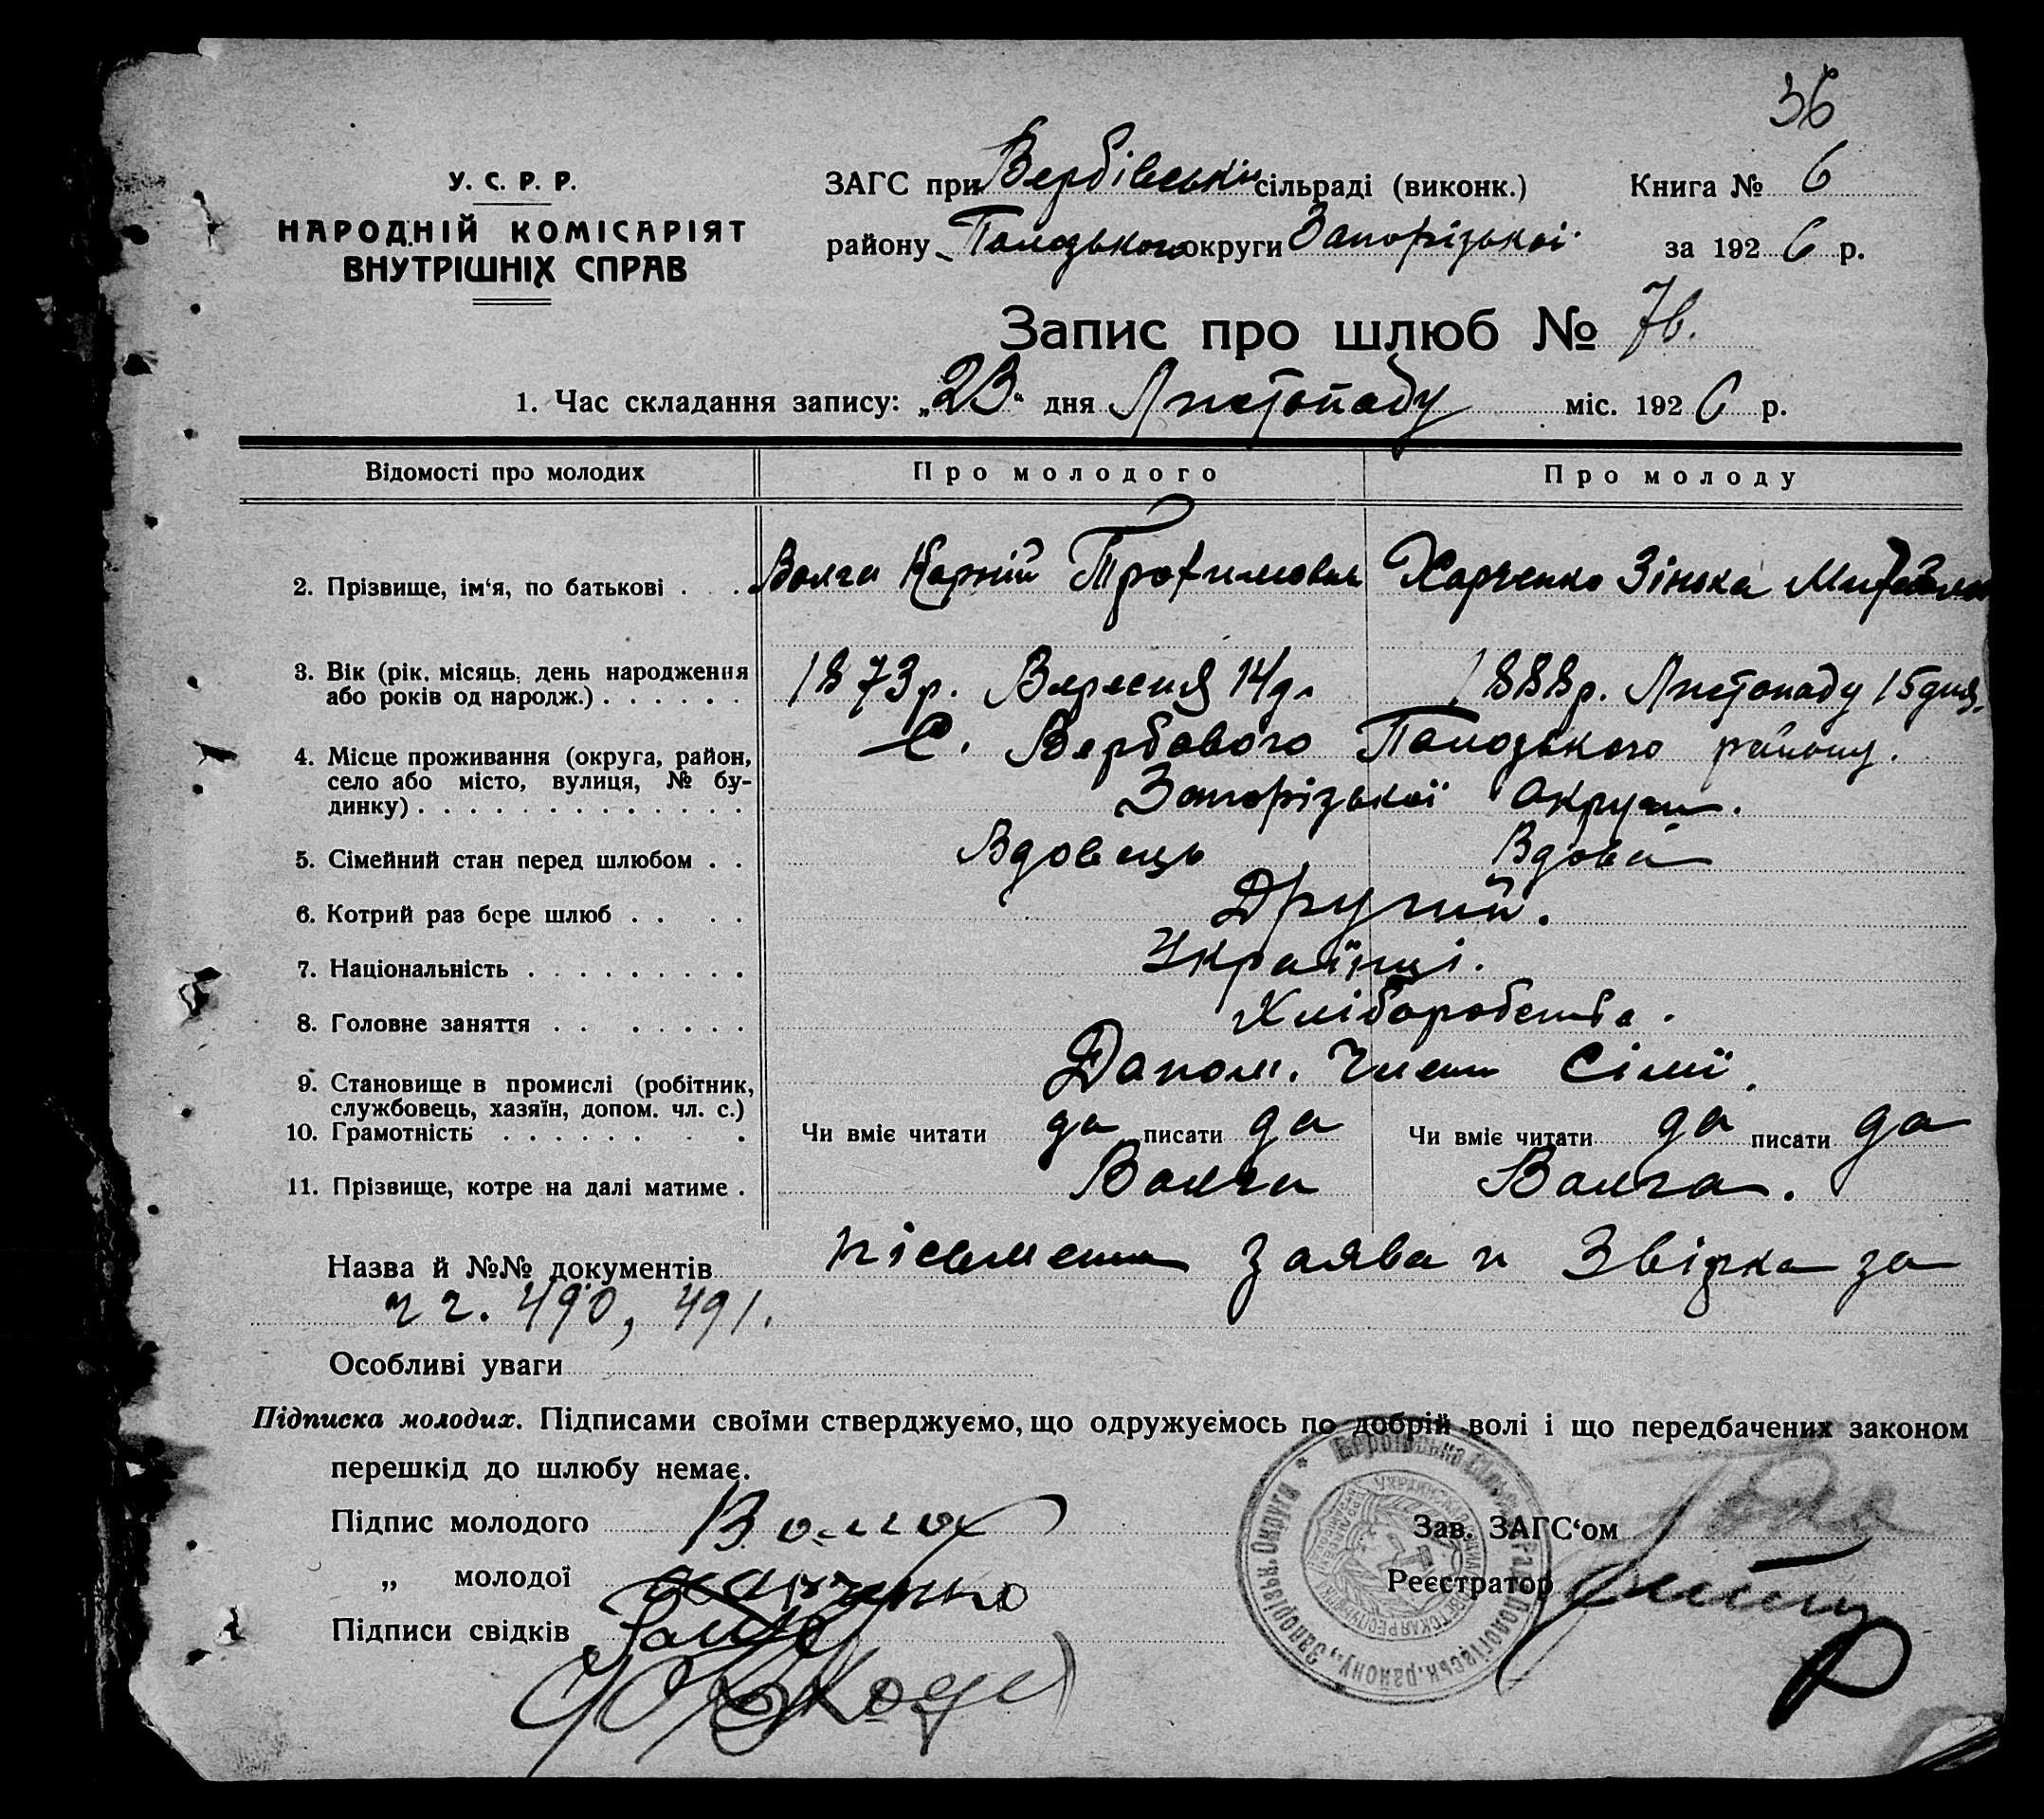 36
У. С. Р. Р.
НАРОДНІЙ КОМІСАРІЯТ
ВНУТРІШНІХ СПРАВ
ЗАГС при Вербівській сільраді (виконк.) Книга № 6
району Пологського округи Запорізької за 1926 р.
Запис про шлюб № 76.
1. Час складання запису: „23“ дня Листопаду міс. 1926 р.
Відомості про молодих Про молодого Про молоду
2. Прізвище, ім‘я, по батькові . . . Волга Корній Трофимович Харченко Зінька
3. Вік (рік, місяць, день народження
або років од народж.) . . . . . . 1873 р. Вересня 14 д. 1888 р. Листопаду 15 дня.
4. Місце проживання (округа, район,
село або місто, вулиця, № бу-
динку) . . . . . . . . . . . . .
С. Вербового Пологського району.
Запорізької Округи.
5. Сімейний стан перед шлюбом . . Вдовець Вдова
6. Котрий раз бере шлюб . . . . Другий.
7. Національність . . . . . . . . . Українці.
8. Головне заняття . . . . . . . Хліборобства.
9. Становище в промислі (робітник,
службовець, хазяїн, допом. чл. с.) Допом. Член Сімї.
10. Грамотність . . . . . . . . Чи вміє читати да писати да Чи вміє читати да писати да
11. Прізвище, котре на далі матиме . Волга Волга.
Назва й №№ документів письменна заява и Звірка за
ч ч. 490, 491.
Особливі уваги
Підписка молодих. Підписами своїми стверджуємо, що одружуємось по добрій волі і що передбачених законом
перешкід до шлюбу немає.
Підпис молодого Волга Зав. ЗАГС‘ом
„ молодої Харченко Реєстратор
Підписи свідків